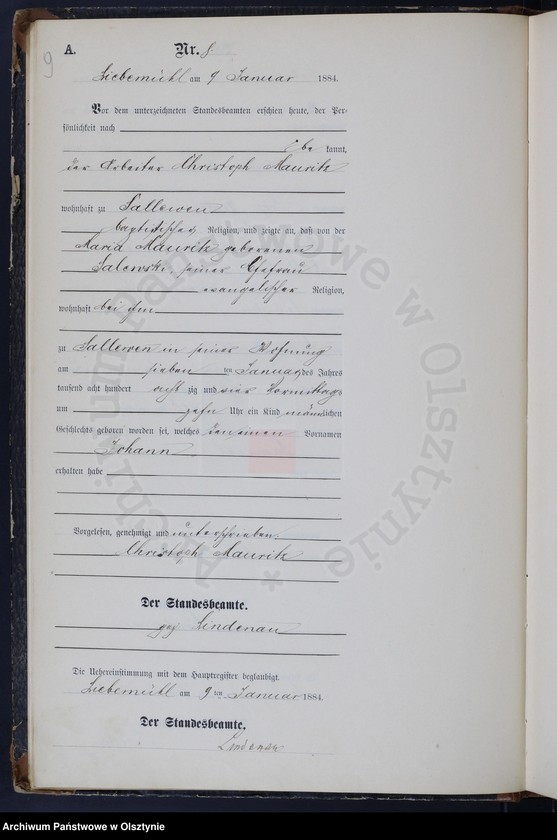 9
A. Nr. 8.
Liebemühl am 9 Januar 1884.
Vor dem unterzeichneten Standesbeamten erschien heute, der Per-
sönlichkeit nach
be kannt,
der Arbeiter Christoph Mauritz
wohnhaft zu Sallewen
baptistischer Religion, und zeigte an, daß von der
Maria Mauritz geborenen
Salewski seiner Ehefrau
evangelischer Religion,
wohnhaft bei ihm
zu Sallewen in seiner Wohnung
am sieben ten Januar des Jahres
tausend acht hundert acht zig und vier Vormittags
um zehn Uhr ein Kind männlichen
Geschlechts geboren worden sei, welches den einen Vornamen
Johann
erhalten habe
Vorgelesen, genehmigt und unterschrieben
Christoph Mauritz
Der Standesbeamte.
gez Lindenau
Die Uebereinstimmung mit dem Hauptregister beglaubigt.
Liebemühl am 9 ten Januar 1884.
Der Standesbeamte.
Lindenau
Archiwum Państwowe w Olsztynie
Archiwum Państwowe w Olsztynie